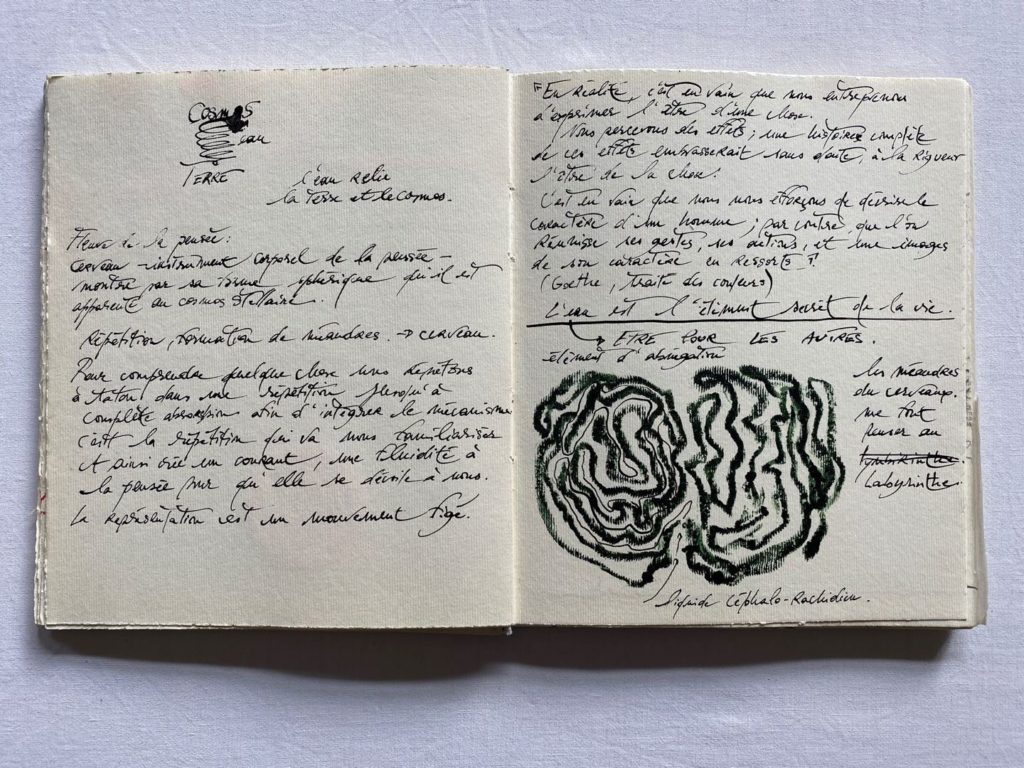 COSMOS
eau
TERRE
l'eau relie
la terre et le cosmos.
Fleuve de la pensée :
cerveau - instrument corporel de la pensée -
montre par sa forme sphérique qu'il est
apparenté au cosmos stellaire.
Répétition, formation de méandres. → cerveau.
Pour comprendre quelque chose nous
à taton dans une répétition jusqu'à
complète absorption afin d'intégrer le mécanisme
c'est la répétition qui va nous familiariser
et ainsi crée un courant, une fluidité à
la pensée pour qu'elle se dévoile à nous.
La représentation est un mouvement figé.
"En réalité, c'est en vain que nous entreprenons
d'exprimer l'être d'une chose.
Nous percevons des effets ; une histoire complète
de ces effets embrasserait sans doute, à la rigueur
l'être de la chose.
C'est en vain que nous nous efforçons de décrire le
caractère d'un homme ; par contre, que l'on
réunisse ses gestes, ses actions, et une images
de son caractère en ressort."
(Goethe, traité des couleurs)
L'eau est l'élément secret de la vie.
→ ETRE POUR LES AUTRES.
élément d'abnégation
les méandres
du cerveaux
me font
penser au
Labyrinthe.
liquide Céphalo-Rachidien.